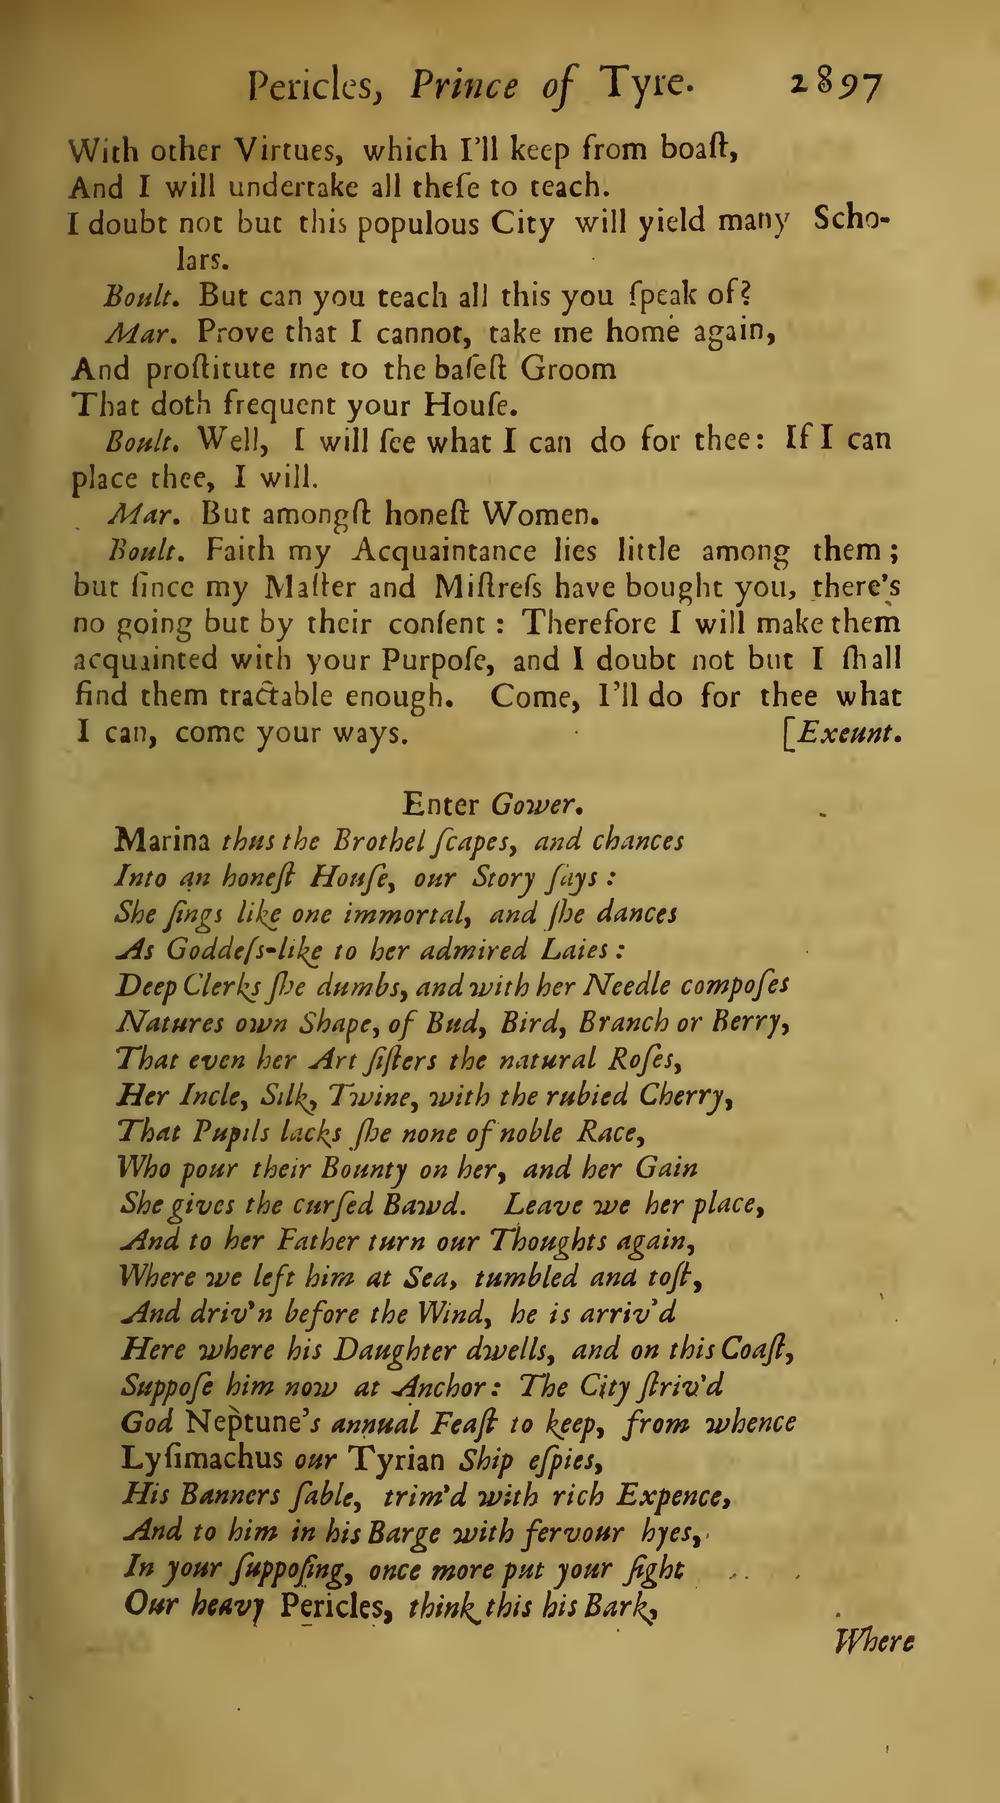 Pericles, Prince of Tyre. 2897
With other Virtues, which I'll keep from boaſt,
And I will undertake all theſe to teach.
I doubt not but this populous City will yield many Scho-
lars.
Boult. But can you teach all this you ſpeak of?
Mar. Prove that I cannot, take me home again,
And proſtitute me to the baſeſt Groom
That doth frequent your Houſe.
Boult. Well, I will ſee what I can do for thee: If I can
place thee, I will.
Mar. But amongſt honeſt Women.
Boult. Faith my Acquaintance lies little among them;
but ſince my Maſter and Miſtreſs have bought you, there's
no going but by their conſent: Therefore I will make them
acquainted with your Purpoſe, and I doubt not but I ſhall
find them tractable enough. Come, I'll do for thee what
I can, come your ways. [Exeunt.
Enter Gower.
Marina thus the Brothel ſcapes, and chances
Into an honeſt Houſe, our Story ſays:
She ſings like one immortal, and ſhe dances
As Goddeſs-like to her admired Laies:
Deep Clerks ſhe dumbs, and with her Needle compoſes
Natures own Shape, of Bud, Bird, Branch or Berry,
That even her Art ſiſters the natural Roſes,
Her Incle, Silk, Twine, with the rubied Cherry,
That Pupils lacks ſhe none of noble Race,
Who pour their Bounty on her, and her Gain
She gives the curſed Bawd. Leave we her place,
And to her Father turn our Thoughts again,
Where we left him at Sea, tumbled and toſt,
And driv'n before the Wind, he is arriv'd
Here where his Daughter dwells, and on this Coaſt,
Suppoſe him now at Anchor: The City ſtriv'd
God Neptune's annual Feaſt to keep, from whence
Lyſimachus our Tyrian Ship eſpies,
His Banners ſable, trim'd with rich Expence,
And to him in his Barge with fervour hyes,
In your ſuppoſing, once more put your ſight
Our heavy Pericles, think this his Bark,
Where